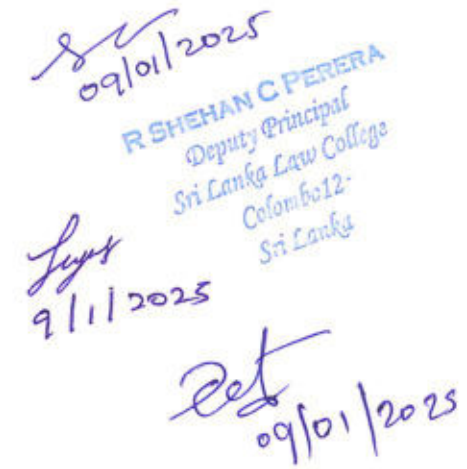 09/01/2025
R SHEHAN C PERERA
Deputy Principal
Sri Lanka Law College
Colombo12-
Sri Lanka
9/1/2025
09/01/2025